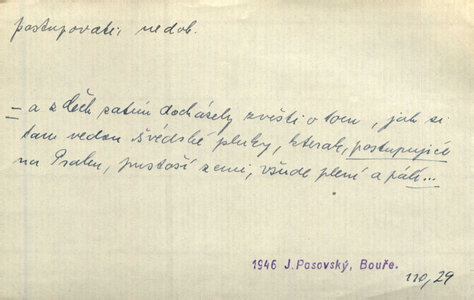 postupovati, nedok.
= a z Čech zatím docházely zvěsti o tom, jak si
tam vedou švédské pluky, kterak, postupujíce
na Prahu, pustoší zemi, všude plení a pálí...
1946 J. Pasovský, Bouře.
110, 29